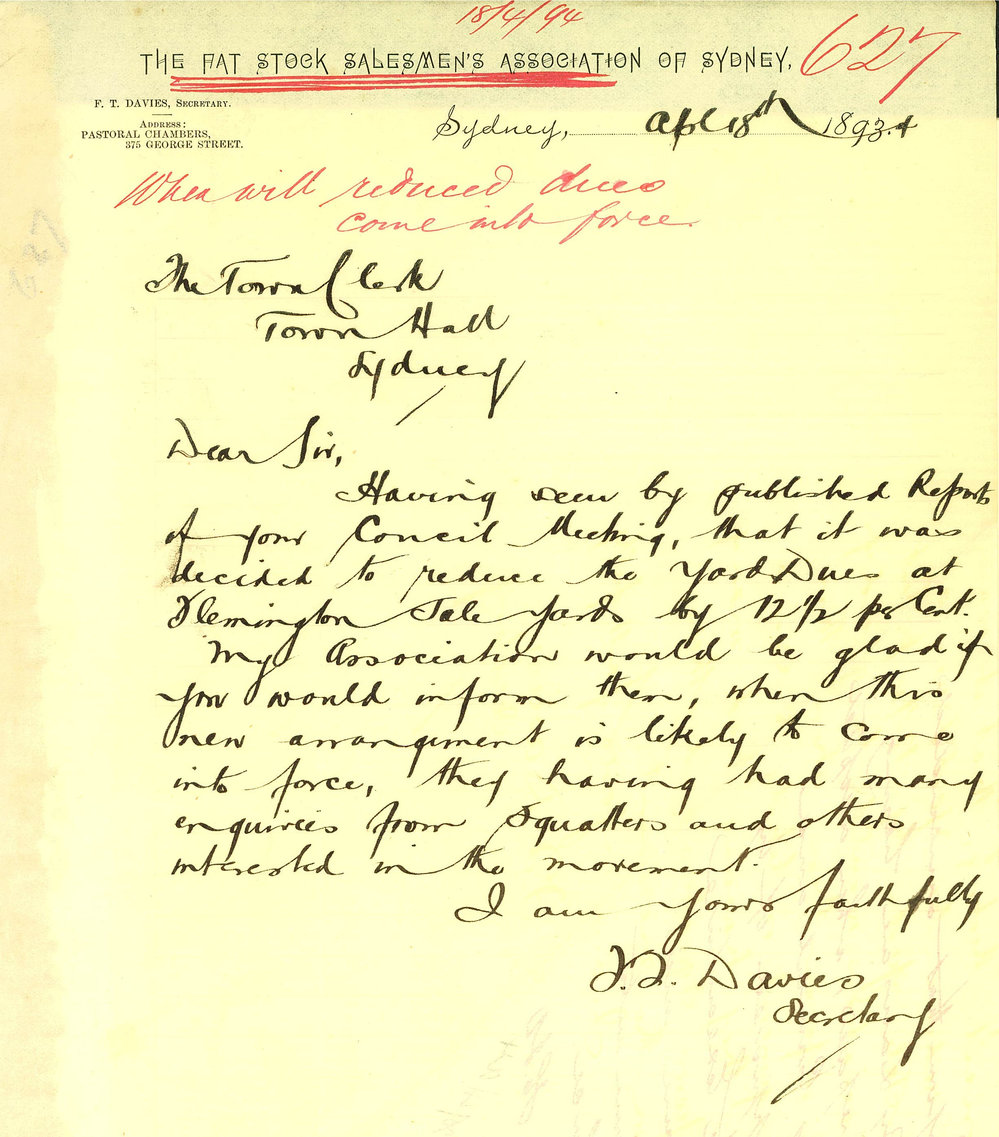 18/4/94
THE FAT STOCK SALESMEN'S ASSOCIATION OF SYDNEY, 627
F. T. DAVIES, SECRETARY.
ADDRESS:
PASTORAL CHAMBERS,
375 GEORGE STREET.
Sydney, Apl 18th 1893.4
When will reduced dues
come into force.
627
The Town Clerk
Town Hall
Sydney
Dear Sir,
Having seen by published Reports
of your Council Meeting, that it was
decided to reduce the Yard Dues at
Flemington Sale Yards by 12 1/2 per Cent.
My Association would be glad if
you would inform them, when this
new arrangement is likely to come
into force, they having had many
enquiries from Squatters and others
interested in the movement.
I am Yours faithfully
F. T. Davies
Secretary